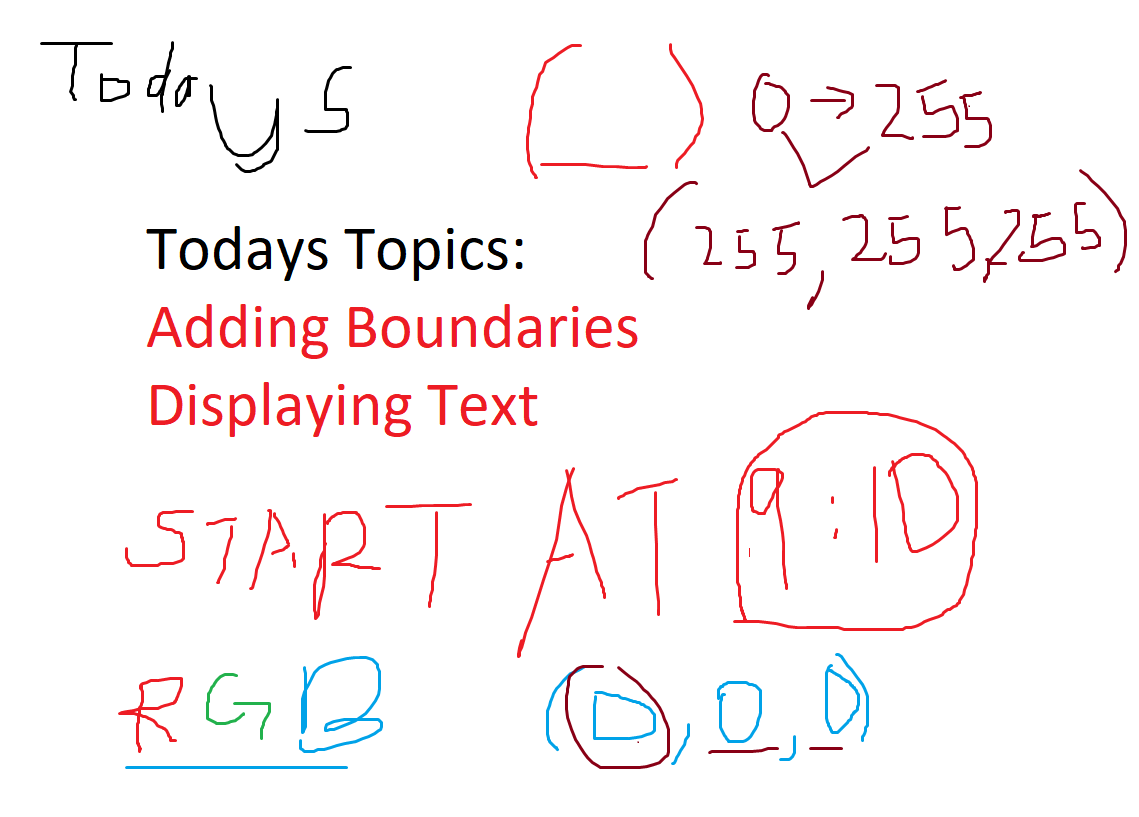 Todays
( _ ) 0 → 255
(255, 255, 255)
Todays Topics:
Adding Boundaries
Displaying Text
START AT 9:10
RGB (0, 0, 0)